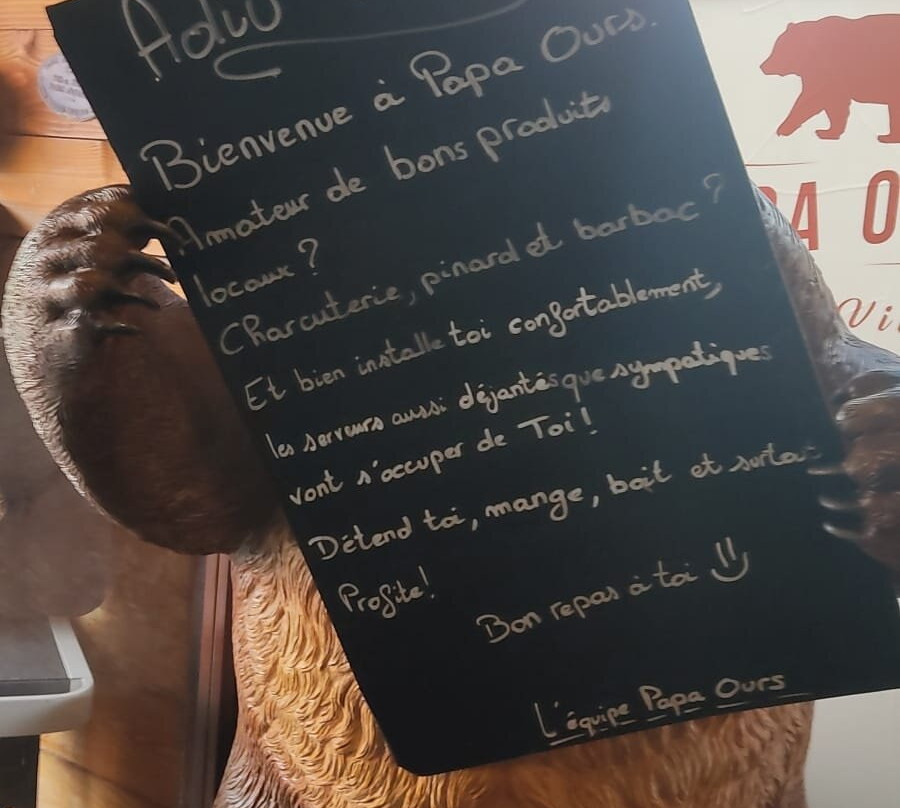 Adiu
Bienvenue à Papa Ours.
Amateur de bons produits
locaux ?
Charcuterie, pinard et barbac ?
Et bien installe toi confortablement,
les serveurs aussi déjantés que sympatiques
vont s'occuper de Toi !
Détend toi, mange, boit et surtout
Profite !
Bon repas à toi
L'équipe Papa Ours
PA O
Vi